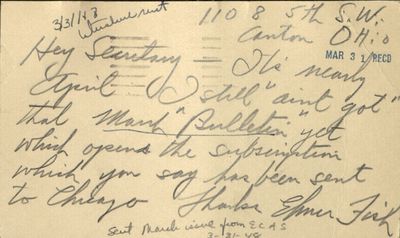 3/31/48
1108 5th S.W.
Canton OHio
MAR 31 RECD
Hey Secretary — It's nearly
April I still "aint got"
that March "Bulletin" yet
which opens the subscription
which you say has been sent
to Chicago Thanks Elmer Fish
sent March issue from E C A S
3-31-48